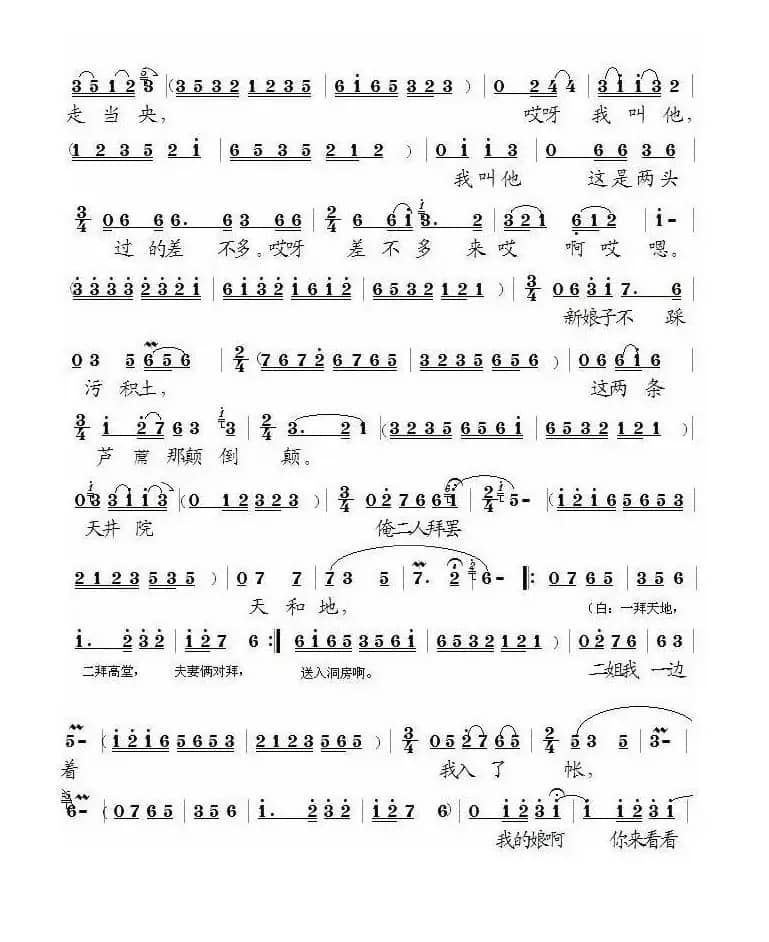 3 5 1 2 3 (3 5 3 2 1 2 3 5 | 6 i 6 5 3 2 3 ) | 0 2 4 4 | 3 i i 3 2
走当央, 哎呀我叫他,
(1 2 3 5 2 i | 6 5 3 5 2 1 2 ) | 0 i i 3 | 0 6 6 3 6 |
我叫他 这是两头
3/4 0 6 6 6. 6 3 6 6 | 2/4 6 6 i 3. 2 | 3 2 1 6 1 2 | i -
过的差不多。哎呀差不多来哎啊哎嗯。
(3 3 3 3 2 3 2 i | 6 i 3 2 i 6 i 2 | 6 5 3 2 1 2 1 ) | 3/4 0 6 3 i 7. 6 |
新娘子不踩
0 3 5 6 5 6 | 2/4 (7 6 7 2 6 7 6 5 | 3 2 3 5 6 5 6 ) | 0 6 6 i 6
污积土, 这两条
3/4 i 2 7 6 3 3 | 2/4 3. 2 1 | (3 2 3 5 6 5 6 i | 6 5 3 2 1 2 1 )
芦蓆那颠倒颠。
0 3 3 i i 3 | (0 1 2 3 2 3 ) | 3/4 0 2 7 6 6 i | 2/4 5 - | (i 2 i 6 5 6 5 3
天井院 俺二人拜罢
2 1 2 3 5 3 5 ) | 0 7 7 | 7 3 5 | 7. 2 | 6 - ‖: 0 7 6 5 | 3 5 6 |
天和地, (白:一拜天地,
i. 2 3 2 | i 2 7 6 :‖ 6 i 6 5 3 5 6 i | 6 5 3 2 1 2 1 ) | 0 2 7 6 | 6 3
二拜高堂, 夫妻俩对拜, 送入洞房啊。 二姐我一边
5 - (i 2 i 6 5 6 5 3 | 2 1 2 3 5 6 5 ) | 3/4 0 5 2 7 6 5 | 2/4 5 3 5 | 3 - |
着 我入了帐,
6 - (0 7 6 5 | 3 5 6 | i. 2 3 2 | i 2 7 6 ) | 0 i 2 3 i | i i 2 3 i |
我的娘啊 你来看看